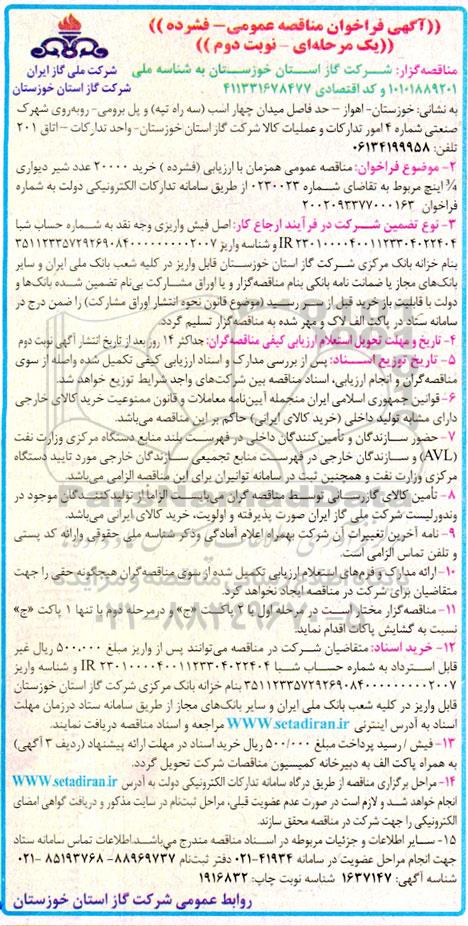 ((آگهی فراخوان مناقصه عمومی– فشرده ))
((یک مرحله‌ای – نوبت دوم ))
شرکت ملی گاز ایران
شرکت گاز استان خوزستان
مناقصه‌گزار: شرکت گاز استان خوزستان به شناسه ملی
۱۰۱۰۱۸۸۹۲۰۱ و کد اقتصادی ۴۱۱۳۳۱۶۷۸۴۷۷
به نشانی: خوزستان- اهواز – حد فاصل میدان چهار اسب (سه راه تپه) و پل برومی- روبه‌روی شهرک
صنعتی شماره ۴ امور تدارکات و عملیات کالا شرکت گاز استان خوزستان- واحد تدارکات – اتاق ۲۰۱
تلفن: ۰۶۱۳۴۱۹۹۹۵۸
۲- موضوع فراخوان: مناقصه عمومی همزمان با ارزیابی (فشرده ) خرید ۲۰۰۰۰ عدد شیر دیواری
¾ اینچ مربوط به تقاضای شماره ۰۲۳۰۰۲۳ از طریق سامانه تدارکات الکترونیکی دولت به شماره
فراخوان ۲۰۰۲۰۹۳۳۷۷۰۰۰۱۶۳
۳- نوع تضمین شرکت در فرآیند ارجاع کار: اصل فیش واریزی وجه نقد به شماره حساب شبا
IR ۲۳۰۱۰۰۰۰۴۰۰۱۱۲۳۳۰۴۰۲۲۴۰۴ و شناسه واریز ۳۵۱۱۲۳۳۵۷۲۹۲۶۹۰۸۴۰۰۰۰۰۰۰۰۰۲۰۰۷
بنام خزانه بانک مرکزی شرکت گاز استان خوزستان قابل واریز در کلیه شعب بانک ملی ایران و سایر
بانک‌های مجاز یا ضمانت نامه بانکی بنام مناقصه‌گزار و یا اوراق مشارکت بی‌نام تضمین شده بانک‌ها و
دولت با قابلیت باز خرید قبل از سر رسید (موضوع قانون نحوه انتشار اوراق مشارکت) را ضمن درج در
سامانه ستاد در پاکت الف لاک و مهر شده به مناقصه‌گزار تسلیم گردد.
۴- تاریخ و مهلت تحویل استعلام ارزیابی کیفی مناقصه‌گران: حداکثر ۱۴ روز بعد از تاریخ انتشار آگهی نوبت دوم
۵- تاریخ توزیع اسناد: پس از بررسی مدارک و اسناد ارزیابی کیفی تکمیل شده واصله از سوی
مناقصه‌گران و انجام ارزیابی، اسناد مناقصه بین شرکت‌های واجد شرایط توزیع خواهد شد.
۶- قوانین جمهوری اسلامی ایران منجمله آیین‌نامه معاملات و قانون ممنوعیت خرید کالای خارجی
دارای مشابه تولید داخلی (خرید کالای ایرانی) حاکم بر این مناقصه می‌باشد.
۷- حضور سازندگان و تأمین‌کنندگان داخلی در فهرست بلند منابع دستگاه مرکزی وزارت نفت
(AVL) و سازندگان خارجی در فهرست منابع تجمیعی سازندگان خارجی مورد تایید دستگاه
مرکزی وزارت نفت و همچنین ثبت در سامانه توانیران برای این مناقصه الزامی می‌باشد.
۸- تأمین کالای گازرسانی توسط مناقصه گران می‌بایست الزاما از تولیدکنندگان موجود در
وندورلیست شرکت ملی گاز ایران صورت پذیرفته و اولویت، خرید کالای ایرانی می‌باشد.
۹- نامه آخرین تغییرات آن شرکت بهمراه اعلام آمادگی وذکر شناسه ملی حقوقی وارائه کد پستی و
و تلفن تماس الزامی است.
۱۰- ارائه مدارک و فرم‌های استعلام ارزیابی تکمیل شده از سوی مناقصه‌گران هیچگونه حقی را جهت
متقاضیان برای شرکت در مناقصه ایجاد نخواهد کرد.
۱۱- مناقصه‌گزار مختار است در مرحله اول با ۲ پاکت «ج» و درمرحله دوم با تنها ۱ پاکت «ج»
نسبت به گشایش پاکات اقدام نماید.
۱۲- خرید اسناد: متقاضیان شرکت در مناقصه می‌توانند پس از واریز مبلغ ۵۰۰.۰۰۰ ریال غیر
قابل استرداد به شماره حساب شبا IR ۲۳۰۱۰۰۰۰۴۰۰۱۱۲۳۳۰۴۰۲۲۴۰۴ و شناسه واریز
۳۵۱۱۲۳۳۵۷۲۹۲۶۹۰۸۴۰۰۰۰۰۰۰۰۰۲۰۰۷ بنام خزانه بانک مرکزی شرکت گاز استان خوزستان
قابل واریز در کلیه شعب بانک ملی ایران و سایر بانک‌های مجاز از طریق سامانه ستاد درزمان مهلت
اسناد به آدرس اینترنتی WWW.setadiran.ir مراجعه و اسناد مناقصه دریافت نمایند.
۱۳- فیش / رسید پرداخت مبلغ ۵۰۰/۰۰۰ ریال خرید اسناد در مهلت ارائه پیشنهاد (ردیف ۳ آگهی)
به همراه پاکت الف به دبیرخانه کمیسیون مناقصات شرکت تحویل گردد.
۱۴- مراحل برگزاری مناقصه از طریق درگاه سامانه تدارکات الکترونیکی دولت به آدرس WWW.setadiran.ir
انجام خواهد شد و لازم است در صورت عدم عضویت قبلی، مراحل ثبت‌نام در سایت مذکور و دریافت گواهی امضای
الکترونیکی را جهت شرکت در مناقصه محقق سازند.
۱۵- سایر اطلاعات و جزئیات مربوطه در اسناد مناقصه مندرج می‌باشد.اطلاعات تماس سامانه ستاد
جهت انجام مراحل عضویت در سامانه ۴۱۹۳۴-۰۲۱ دفتر ثبت‌نام ۸۸۹۶۹۷۳۷- ۸۵۱۹۳۷۶۸ -۰۲۱
شناسه آگهی: ۱۶۳۷۱۴۷ شناسه نوبت چاپ: ۱۹۱۶۸۳۲
روابط عمومی شرکت گاز استان خوزستان